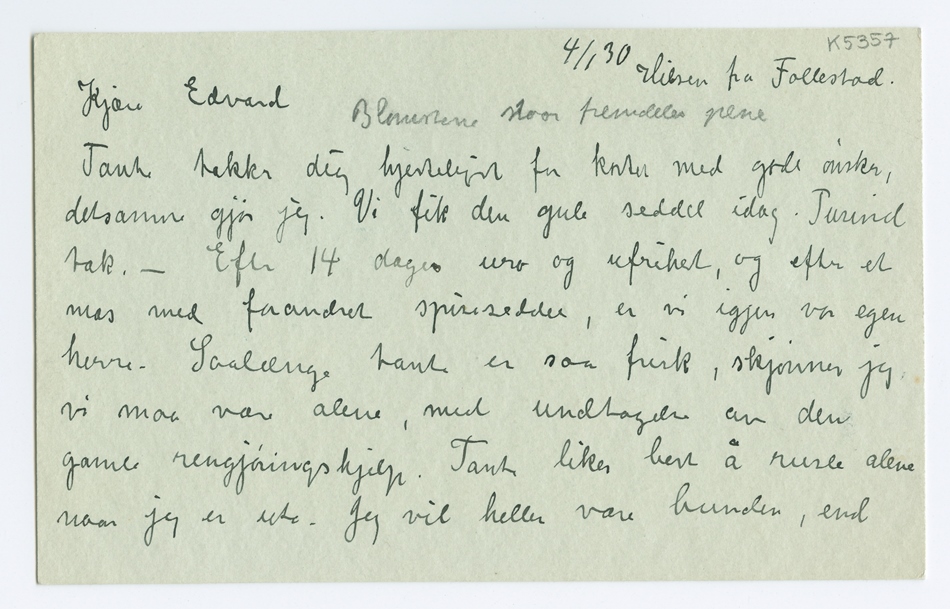 K5357
4/1 30 Hilsen fra Follestad.
Kjære Edvard
Blomsterne staar fremdeles pene
Tante takker dig hjerteligst for kortet med gode ønsker,
detsamme gjør jeg. Vi fik den gule seddel idag. Tusind
tak. — Efter 14 dages uro og ufrihet, og efter et
mas med forandret spiseseddel, er vi igjen vor egen
herre. Saalænge tante er saa frisk, skjønner jeg,
vi maa være alene, med undtagelse av den
gamle rengjøringshjelp. Tante liker best å rusle alene
naar jeg er ute. Jeg vil heller være bunden, end